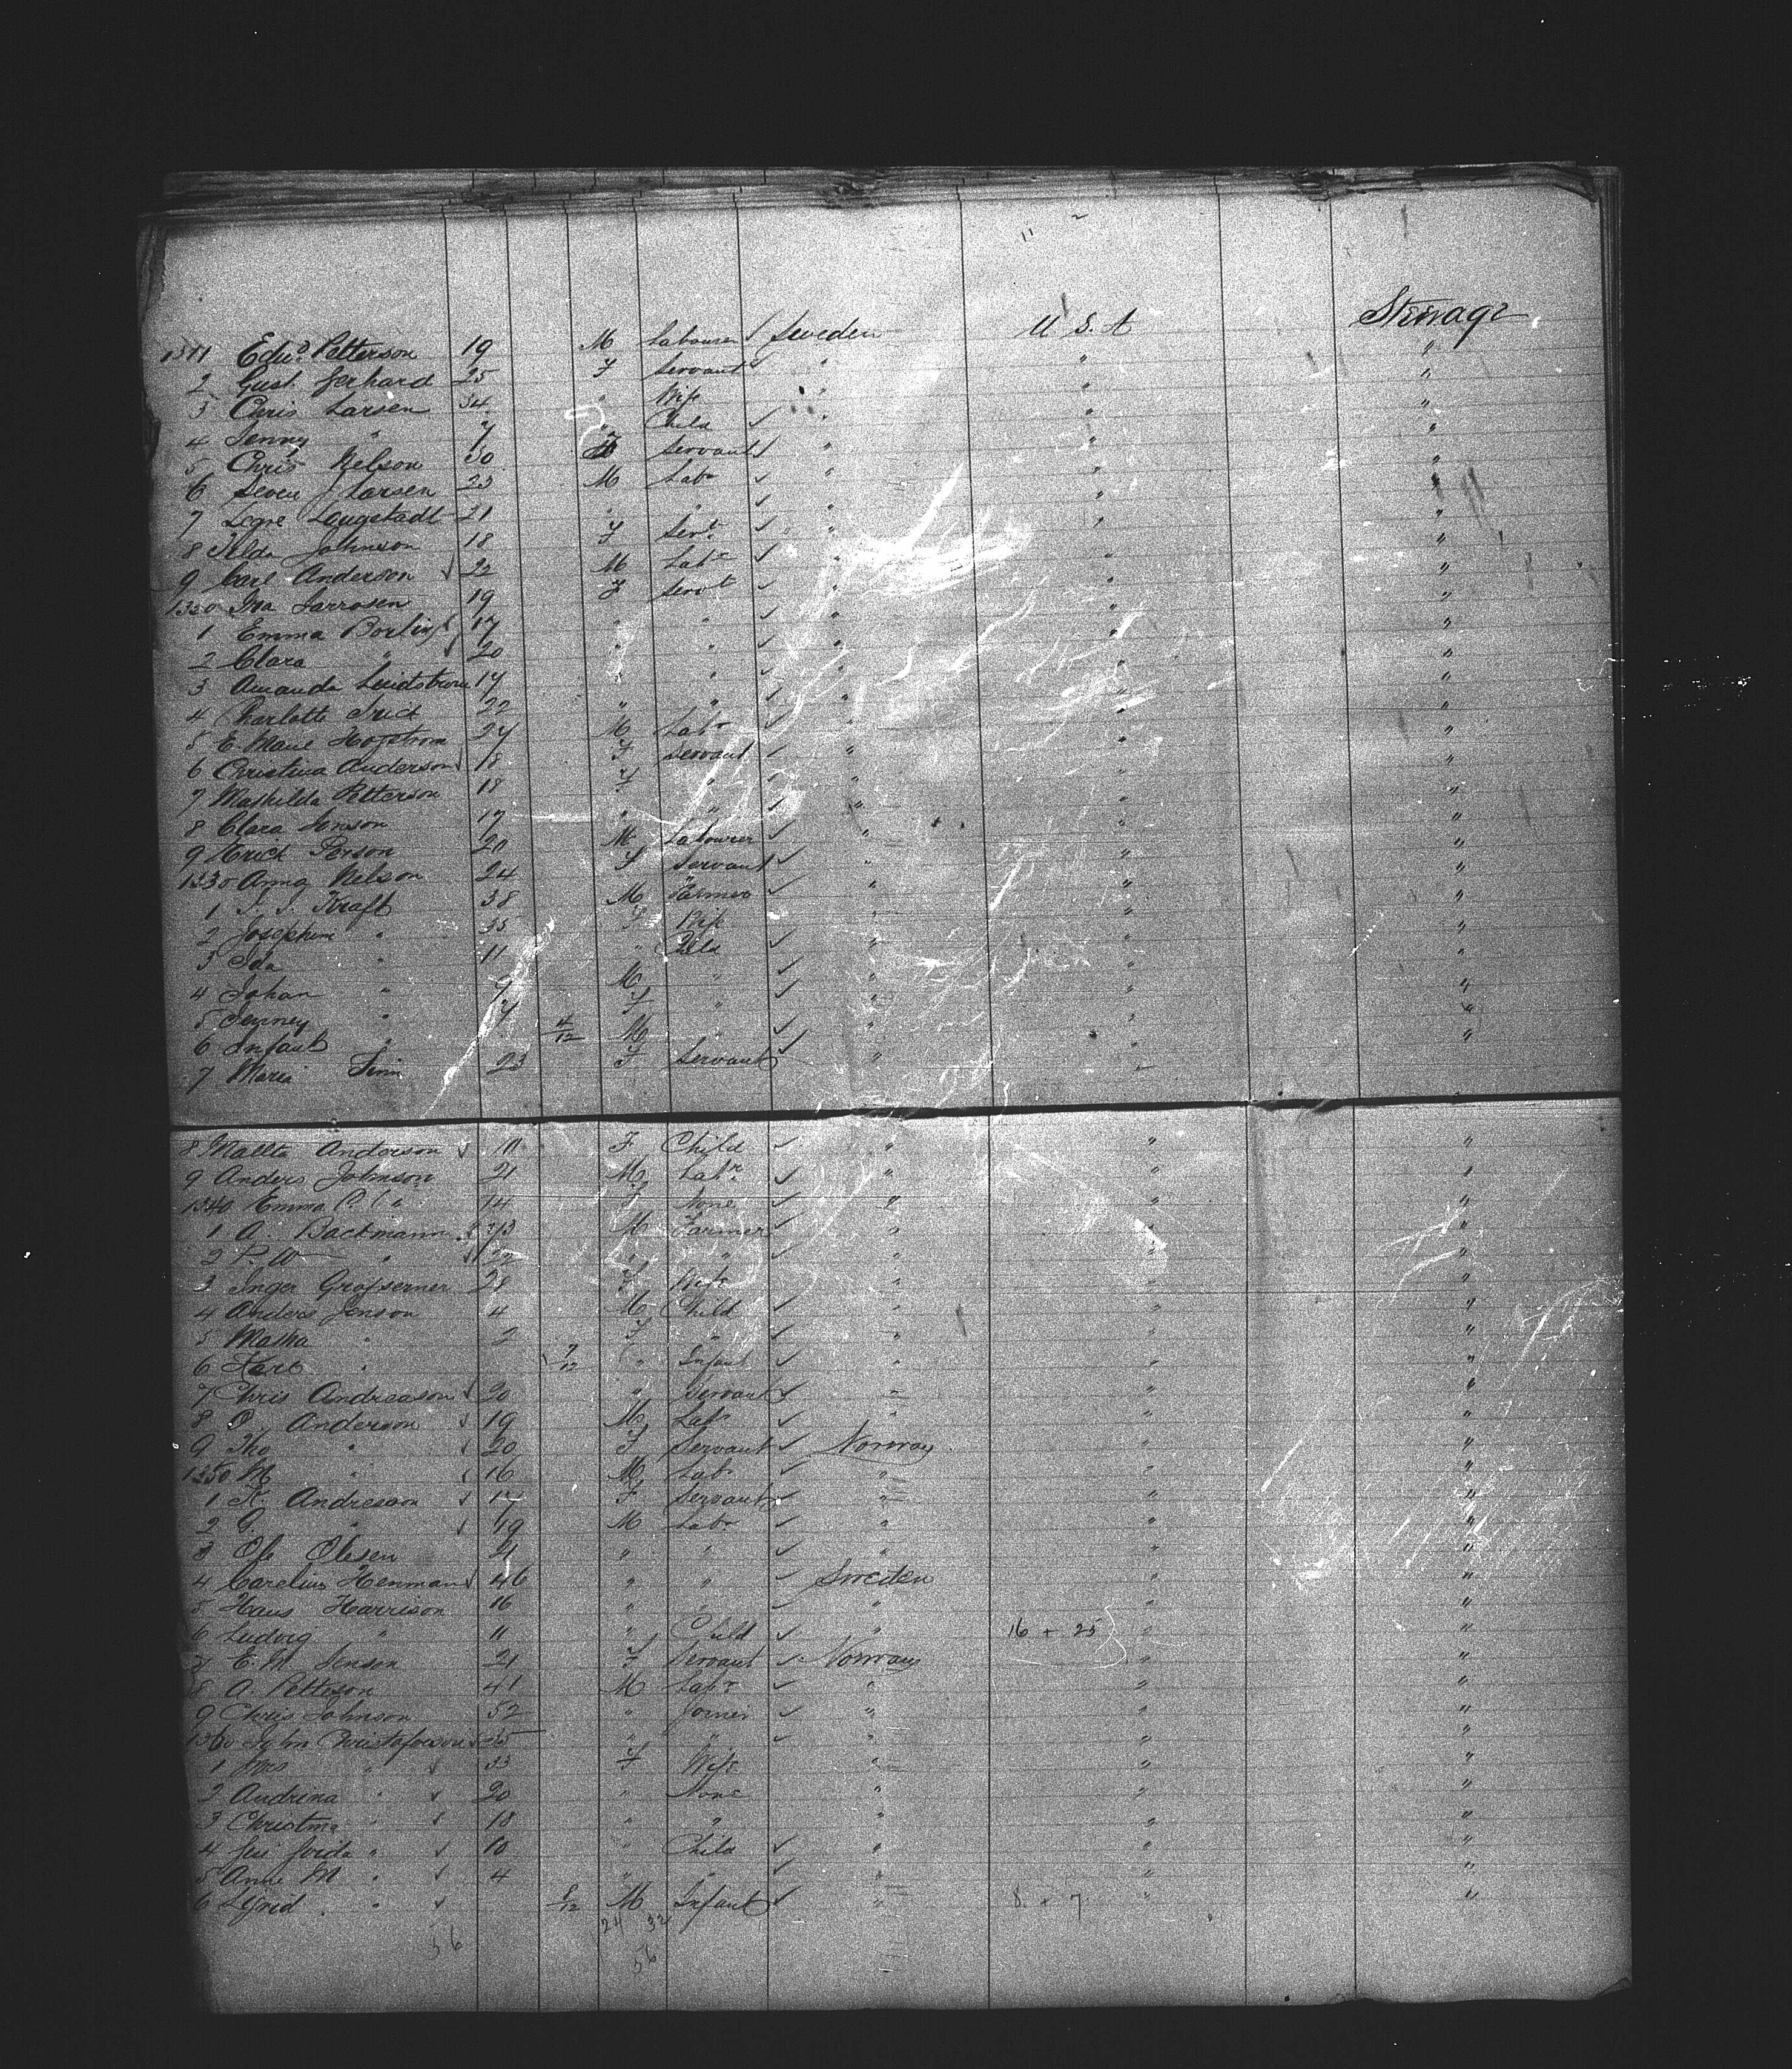 "
1311 Edwd Petterson 19 M Labourer Sweden U S A Steerage
2 Gust. Gerhard 25 F Servant " " "
3 Chris Larsen 34 " Wife " " "
4 Jenny " 7 " Child " " "
5 Chris Nelson 30 F Servant " " "
6 J Larsen 23 M Labr " " "
7 Langstadt 21 " " " " "
8 Hilda Johnson 18 F Servt " " "
9 Carl Anderson 22 M Labr " " "
1320 Ina 19 F Servt " " "
1 Emma 17 " " " " "
2 Clara " 20 " " " " "
3 Amanda 17 " " " " "
4 Charlotte 22 " " " " "
5 E. Marie 24 M Labr " " "
6 Christina Anderson 18 F Servant " " "
7 Mathilda Petterson 18 F " " " "
8 Clara Jonson 17 " " " " "
9 Erick Person 20 M Labourer " " "
1330 Anna Nelson 24 F Servant " " "
1 Kraft 38 M Farmer " " "
2 Josephine " 35 F Wife " " "
3 Ida " 11 " Child " " "
4 Johan " 9 M " " " "
5 Jenney " 7 F " " " "
6 Infant " 4/12 M " " " "
7 Maria Finn 23 F Servant " " "
8 Anderson 11 F Child " " "
9 Anders Johnson 21 M Labr " " "
1340 Emma C. " 14 F None " " "
1 A. Backmann M Farmer " " "
2 P. W " " " " " "
3 Inger 28 F Wife " " "
4 Anders Jenson 4 M Child " " "
5 " 2 F " " " "
6 " 7/12 " Infant " " "
7 Chris Andreason 20 " Servant " " "
8 O. Anderson 19 M Labr " " "
9 Tho " 20 F Servant Norway " "
1350 M " 16 M Labr " " "
1 K. Andreason 17 F Servant " " "
2 G. " 19 M Labr " " "
3 Ole Olesen 21 " " " " "
4 Carelius Henman 46 " " Sweden " "
5 Hans Harrison 16 " " " " "
6 Ludvig " 11 " Child " 16 + 25 " "
7 E. M Jenson 21 F Servant Norway " "
8 A. Petteson 41 M Labr " " "
9 Chris Johnson 52 " Joiner " " "
1360 John " " " " "
1 Mrs " 33 F Wife " " "
2 Andrina " 20 " None " " "
3 Christina " 18 " " " " "
4 " 10 " Child " " "
5 Anne M " 4 " " " " "
6 " 8/12 M Infant " 8 + 7 " "
24 32
56 56